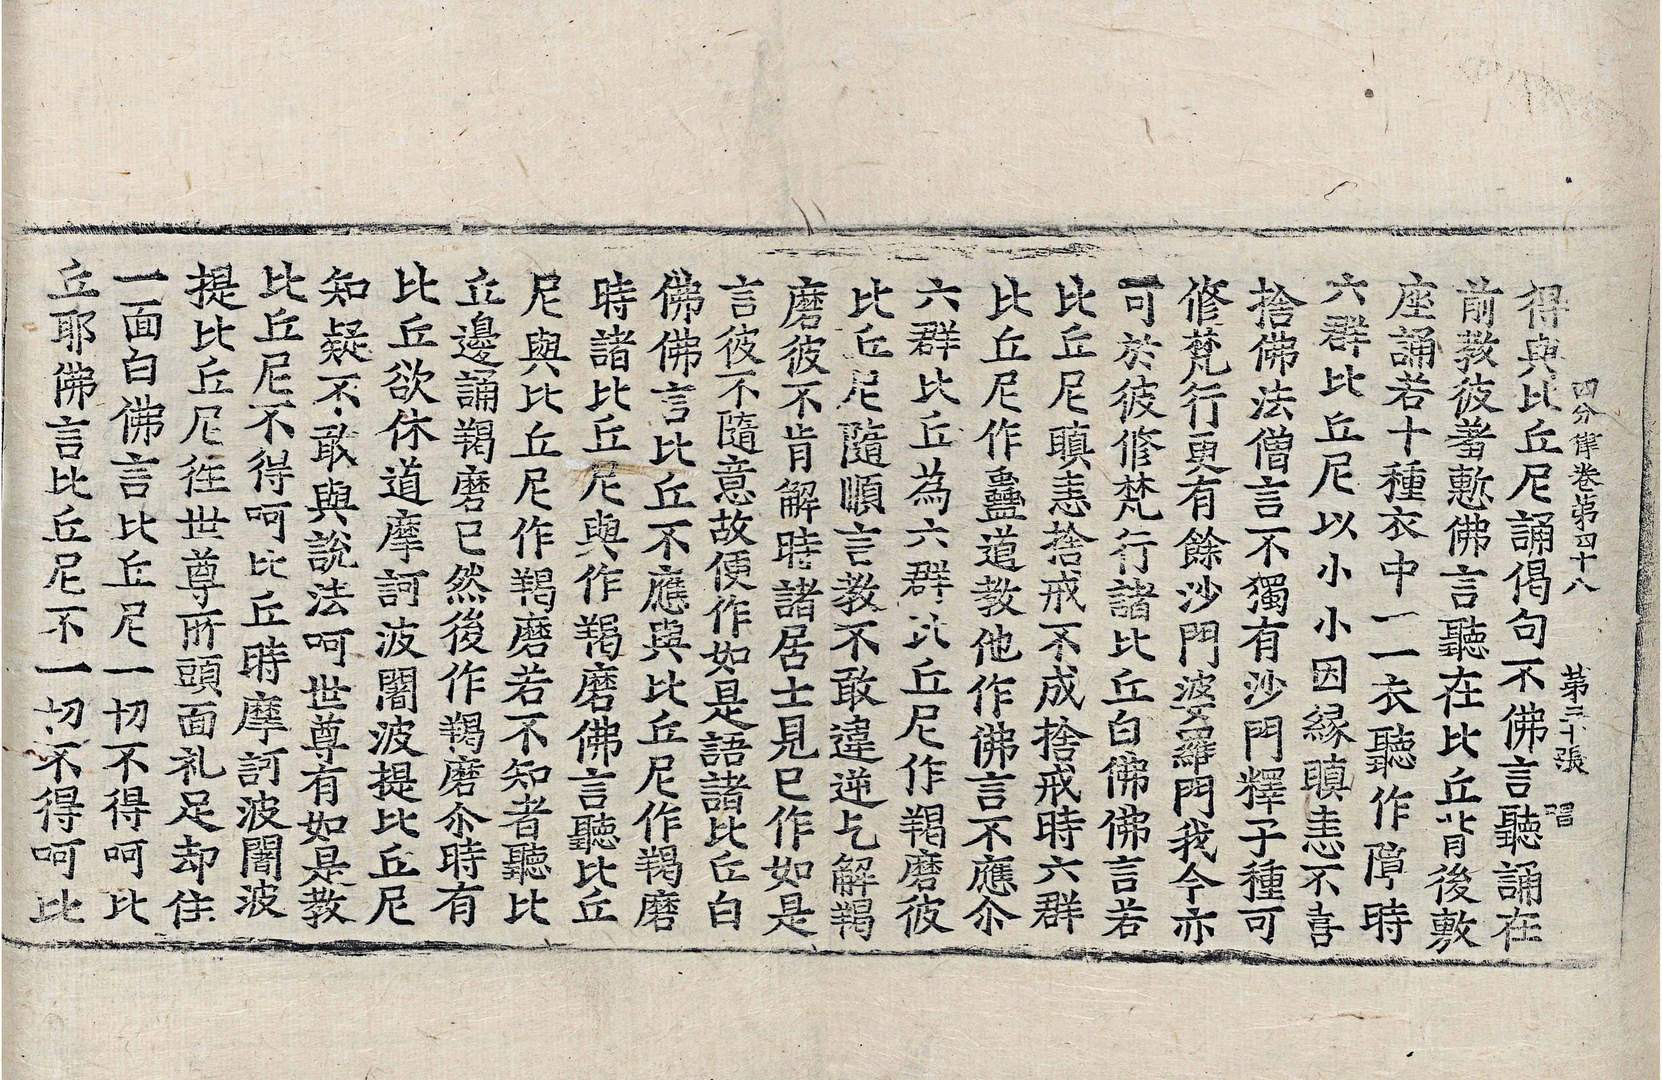 四分律卷第四十八 第三十張 唱
得與比丘尼誦偈句不佛言聽誦在
前教彼羞慙佛言聽在比丘背後敷
座誦若十種衣中一一衣聽作障時
六群比丘尼以小小因緣瞋恚不喜
捨佛法僧言不獨有沙門釋子種可
修梵行更有餘沙門婆羅門我今亦
可於彼修梵行諸比丘白佛佛言若
比丘尼瞋恚捨戒不成捨戒時六群
比丘尼作蠱道教他作佛言不應尒
六群比丘為六群比丘尼作羯磨彼
比丘尼隨順言教不敢違逆乞解羯
磨彼不肯解時諸居士見已作如是
言彼不隨意故便作如是語諸比丘白
佛佛言比丘不應與比丘尼作羯磨
時諸比丘尼與作羯磨佛言聽比丘
尼與比丘尼作羯磨若不知者聽比
丘邊誦羯磨已然後作羯磨尒時有
比丘欲休道摩訶波闍波提比丘尼
知疑不敢與說法呵世尊有如是教
比丘尼不得呵比丘時摩訶波闍波
提比丘尼往世尊所頭面礼足却住
一面白佛言比丘尼一切不得呵比
丘耶佛言比丘尼不一切不得呵比